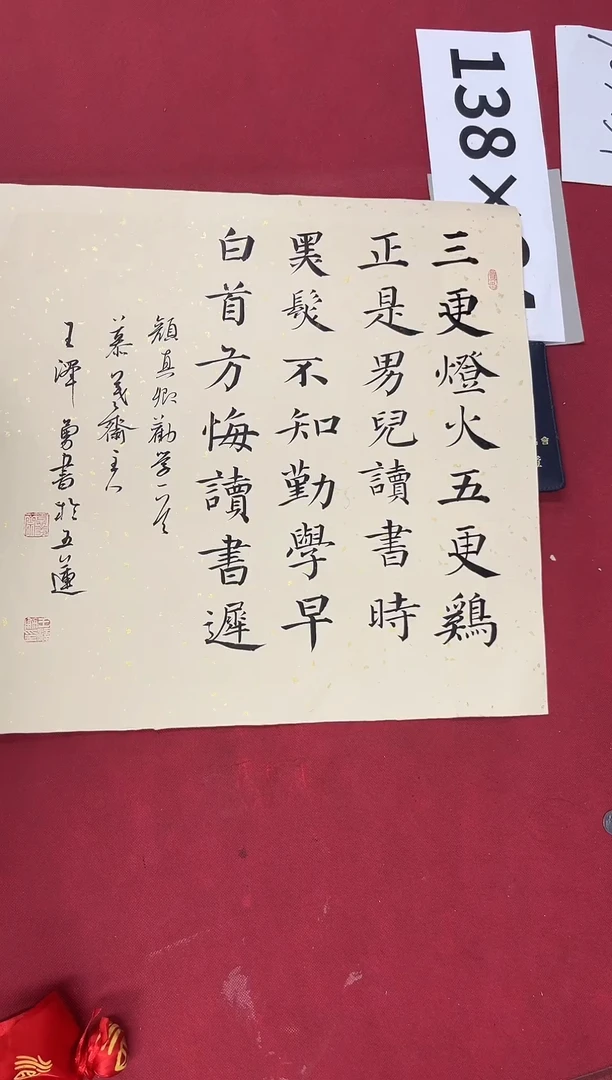 三更燈火五更鷄
正是男兒讀書時
黑髮不知勤學早
白首方悔讀書遲
顔真卿勸學一首
慕羲齋主人
王澤勇書於五蓮
138×
會